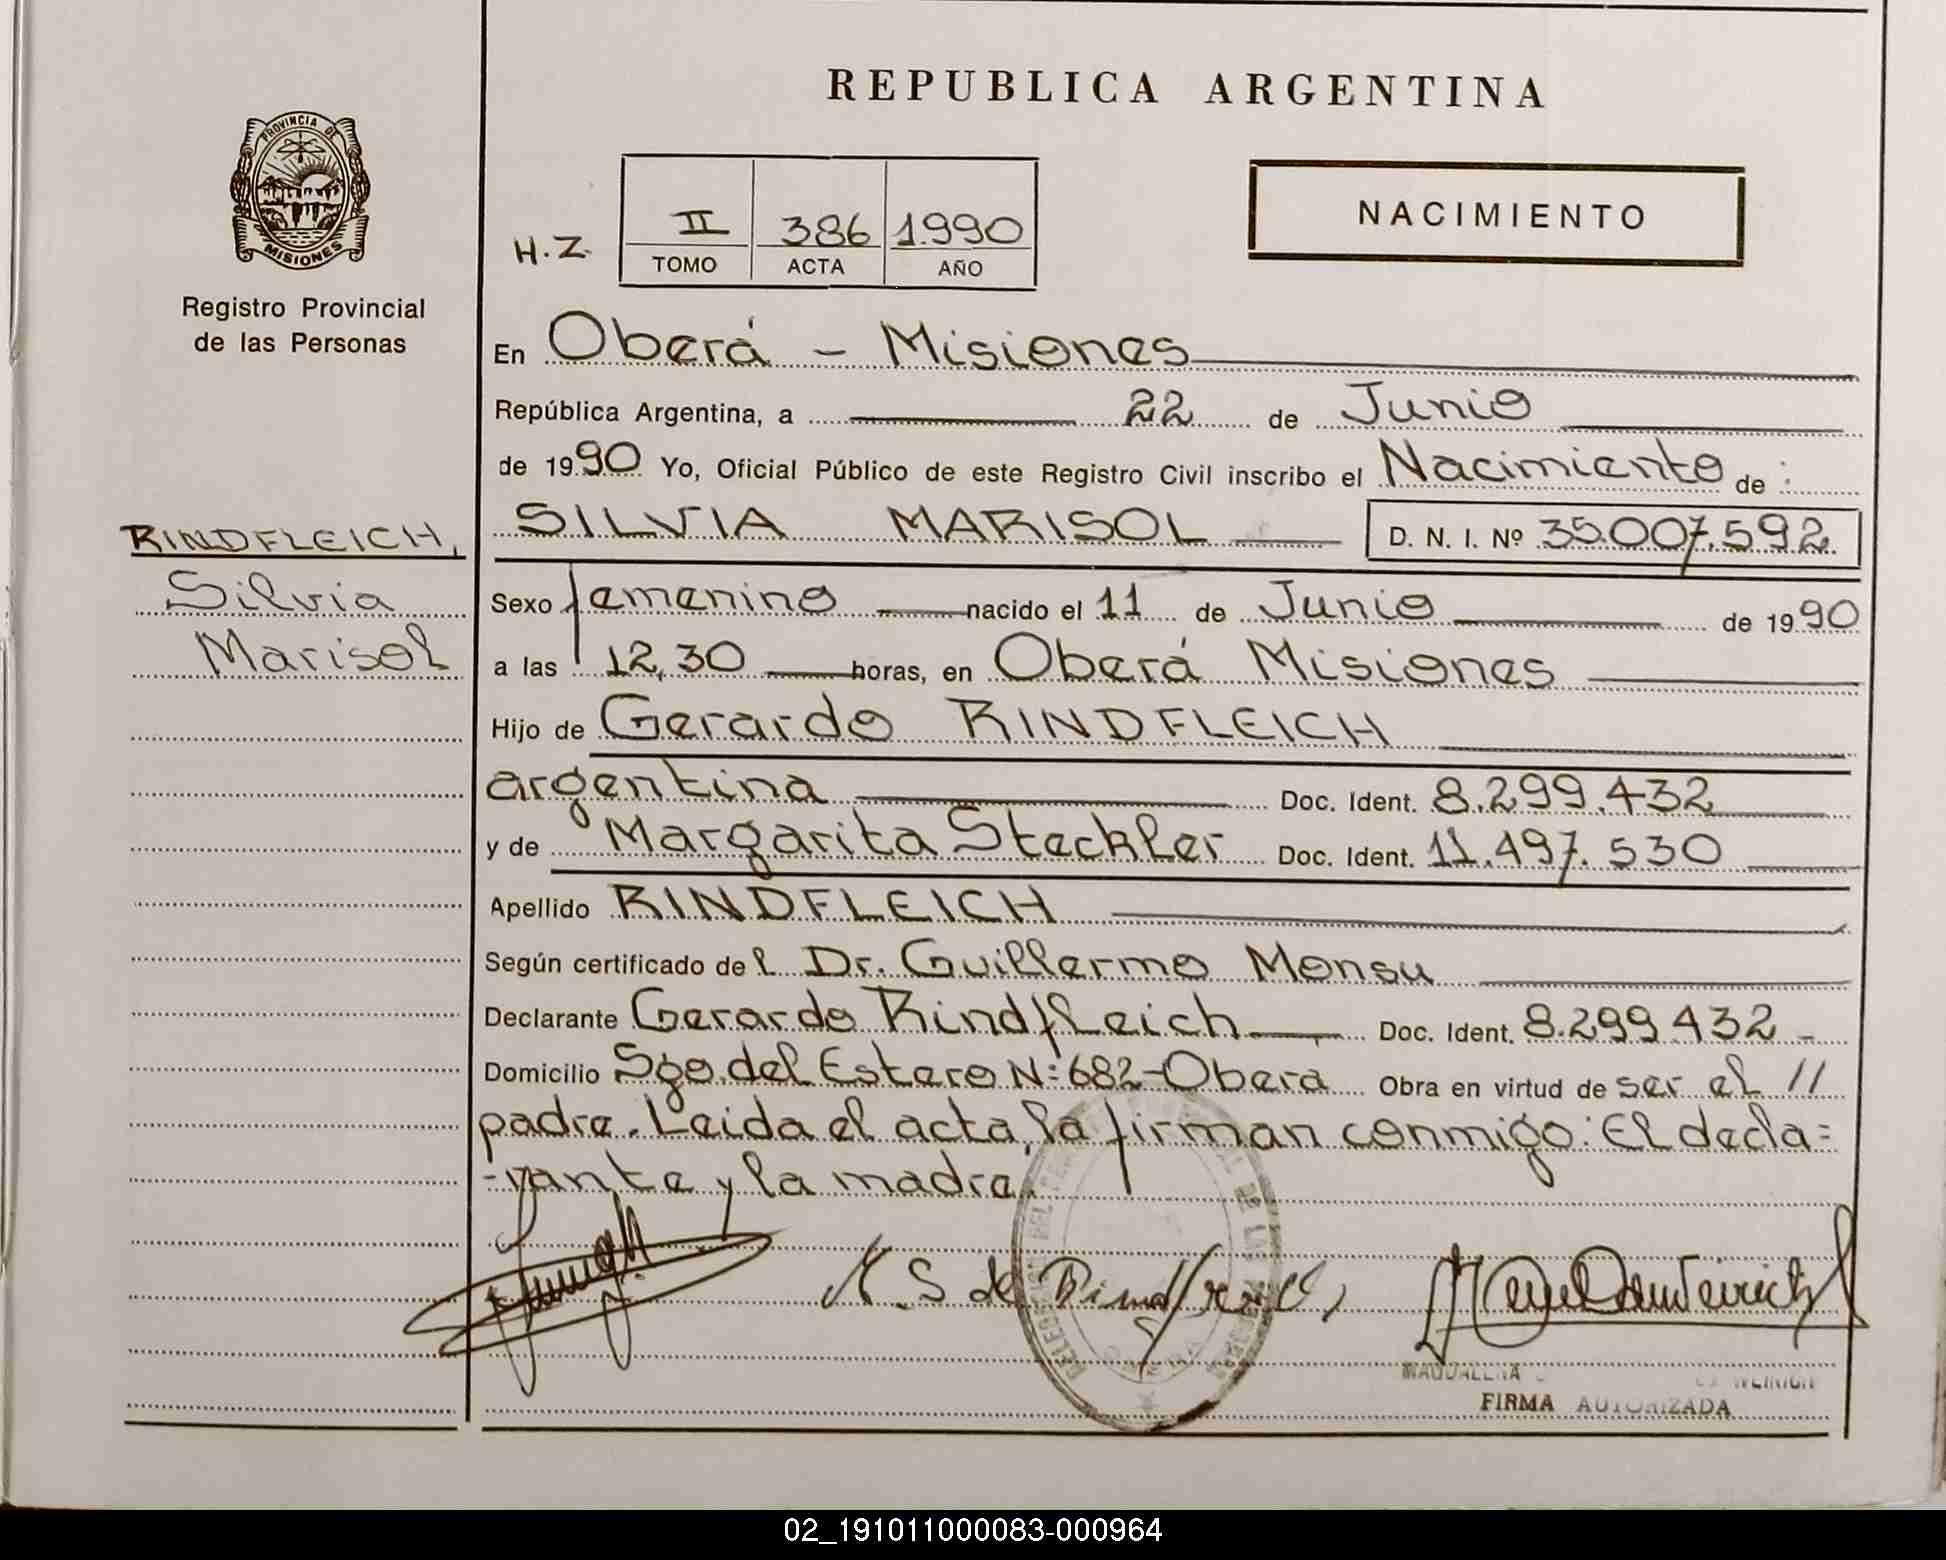 REPUBLICA ARGENTINA
PROVINCIA DE
MISIONES
Registro Provincial
de las Personas
NACIMIENTO
H.Z. II 386 1.990
TOMO ACTA AÑO
En Oberá - Misiones
República Argentina, a 22 de Junio
de 19 90 Yo, Oficial Público de este Registro Civil inscribo el Nacimiento de :
RINDFLEICH,
Silvia
Marisol
SILVIA MARISOL D. N. I. Nº 35.007.592
Sexo femenino nacido el 11 de Junio de 19 90
a las 12,30 horas, en Oberá Misiones
Hijo de Gerardo RINDFLEICH
argentina Doc. Ident. 8.299.432
y de Margarita Steckler Doc. Ident. 11.497.530
Apellido RINDFLEICH
Según certificado de l Dr. Guillermo Monsu
Declarante Gerardo Rindfleich Doc. Ident. 8.299.432 -
Domicilio Sgo. del Estero N: 682 - Obera Obra en virtud de ser el //
padre. Leida el acta, la firman conmigo: El decla=
-rante y la madre.
M. S de
MAGDALENA
FIRMA AUTORIZADA
02_191011000083-000964